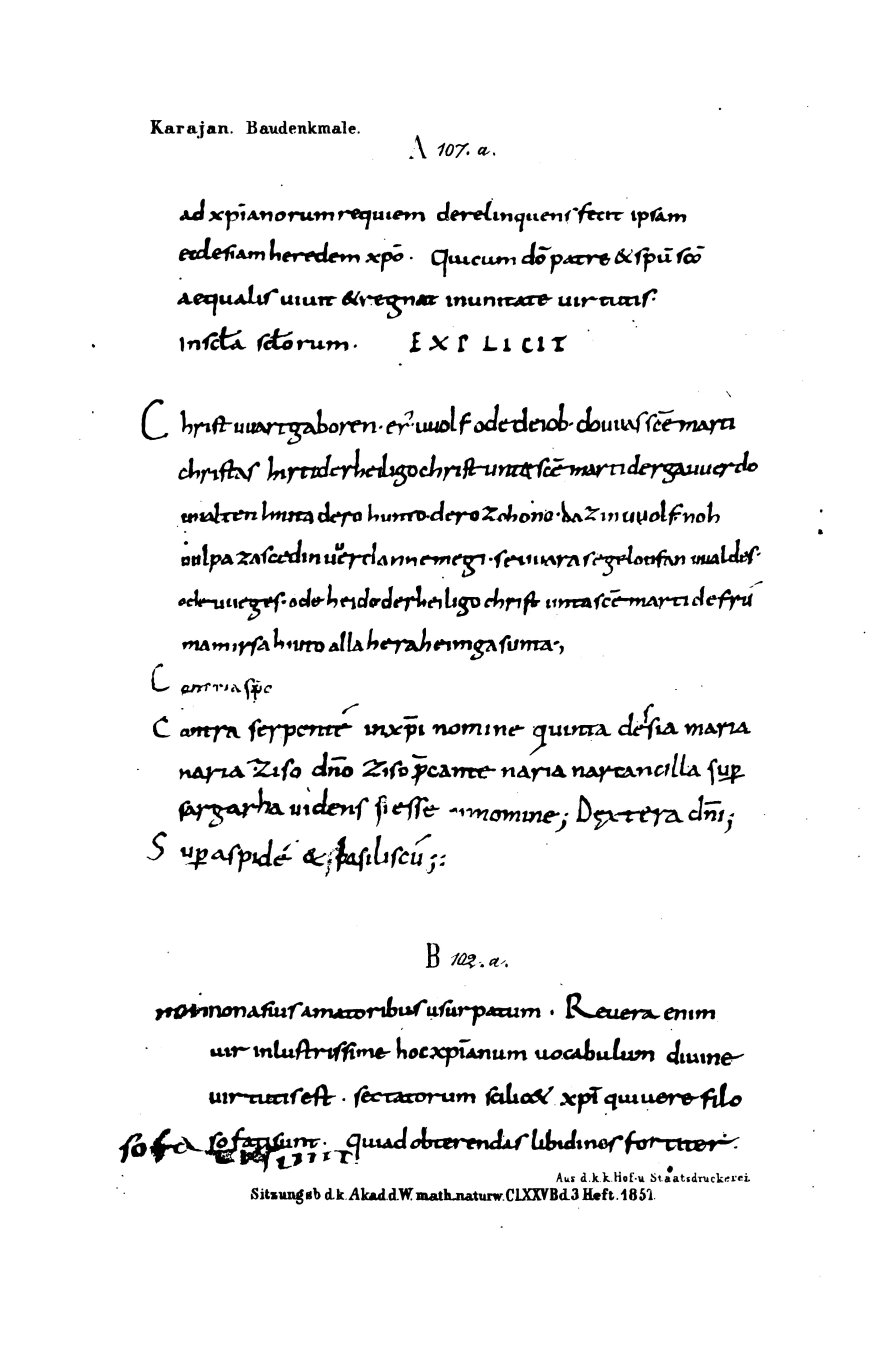 Karajan. Baudenkmale.
A 107. a.
ad xp̄ianorum requiem derelinquens fecit ipsam
ecclesiam heredem xp̄o · Quicum dō patre & spū scō
aequalis uiuit & regnat inunitate uirtutis·
In scła scłorum · EXPLICIT
Christ uuart gaboren · er uuolf ode deiob · do uuas scē marti
christas hirti der heiligo christ unta scē marti der gauuerdo
uualten hiuta dero hunto · dero zohono · daz in uuolf noh
uulpa za scedin uuerdan ne megi · se uuara se geloufan uualdes·
ode uueges · ode heido der heiligo christ unta scē marti de frú
ma mir sa hiuto alla hera heim gasunta·,
C
Contra serpentē in xp̄i nomine quinta desia maria
naria ziso dn̄o ziso p̄cante naria nartancilla sup
sargarha uidens si esse innomine; Dextera dn̄i;
Sup aspidē & basiliscū;:
B 102. a.
non nonasiuis amatoribus usurpatum · Reuera enim
uir inlustrissime hoc xp̄ianum uocabulum diuine
uirtutis est · sectatorum scilic& xp̄i qui uere filo
sofa sofati sunt · Quiad obterendas libidines fortiter ·
Aus d. k. k. Hof- u Staatsdruckerei
Sitzungsb d. k. Akad. d. W. math. naturw. CLXXV Bd. 3 Heft. 1851.